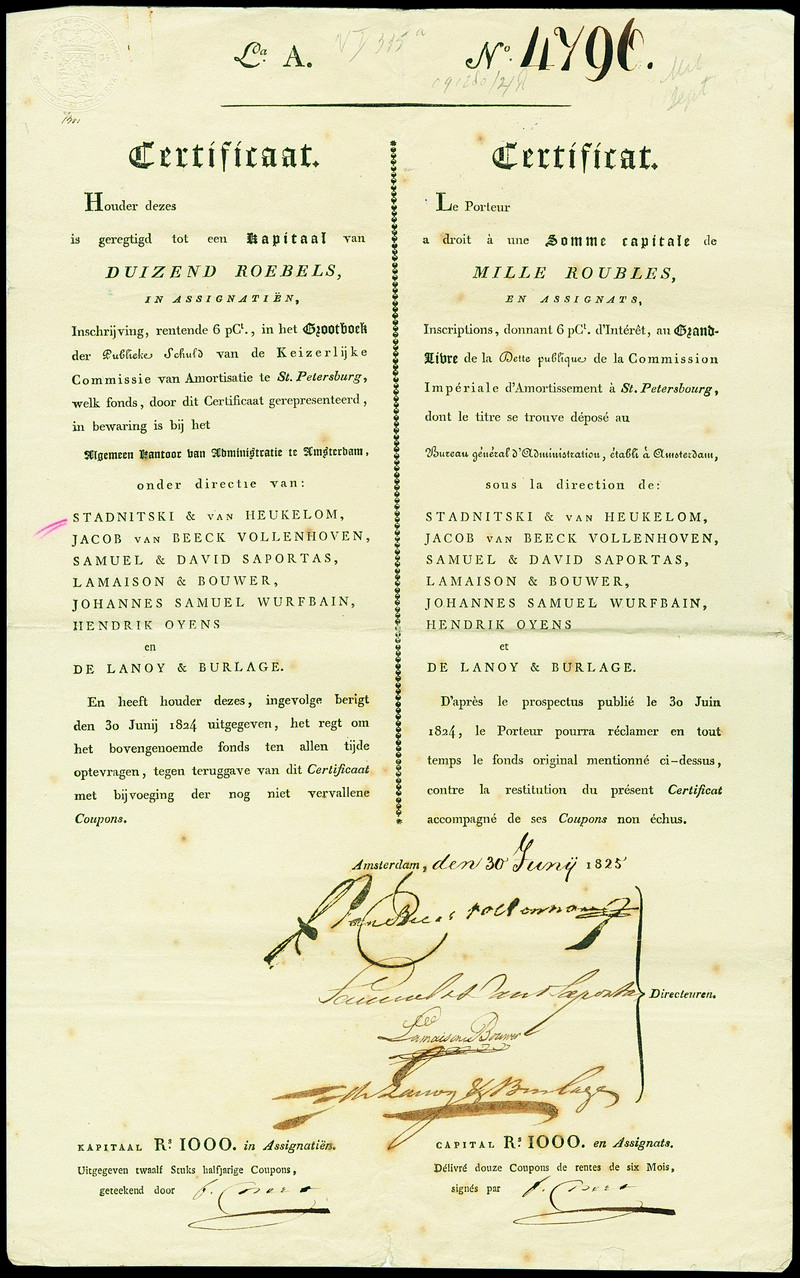 Lª. A.
Nº. 4796.
Certificaat.
Houder dezes
is geregtigd tot een Kapitaal van
DUIZEND ROEBELS,
IN ASSIGNATIËN,
Inschrijving, rentende 6 pCt., in het Grootboek
der Publieke Schuld van de Keizerlijke
Commissie van Amortisatie te St. Petersburg,
welk fonds, door dit Certificaat gerepresenteerd,
in bewaring is bij het
Algemeen Kantoor van Administratie te Amsterdam,
onder directie van:
STADNITSKI & VAN HEUKELOM,
JACOB VAN BEECK VOLLENHOVEN,
SAMUEL & DAVID SAPORTAS,
LAMAISON & BOUWER,
JOHANNES SAMUEL WURFBAIN,
HENDRIK OYENS
en
DE LANOY & BURLAGE.
En heeft houder dezes, ingevolge berigt
den 30 Junij 1824 uitgegeven, het regt om
het bovengenoemde fonds ten allen tijde
optevragen, tegen teruggave van dit Certificaat
met bijvoeging der nog niet vervallene
Coupons.
Certificat.
Le Porteur
a droit à une Somme capitale de
MILLE ROUBLES,
EN ASSIGNATS,
Inscriptions, donnant 6 pCt. d'Intérêt, au Grand-
Libre de la Dette publique de la Commission
Impériale d'Amortissement à St. Petersbourg,
dont le titre se trouve déposé au
Bureau général d'Administration, établi à Amsterdam,
sous la direction de:
STADNITSKI & VAN HEUKELOM,
JACOB VAN BEECK VOLLENHOVEN,
SAMUEL & DAVID SAPORTAS,
LAMAISON & BOUWER,
JOHANNES SAMUEL WURFBAIN,
HENDRIK OYENS
et
DE LANOY & BURLAGE.
D'après le prospectus publié le 30 Juin
1824, le Porteur pourra réclamer en tout
temps le fonds original mentionné ci-dessus,
contre la restitution du présent Certificat
accompagné de ses Coupons non échus.
Amsterdam, den 30 Junij 1825
Van Beeck Vollenhoven
Samuel et David Saportas
Lamaison & Bouwer
de Lanoy & Burlage
Directeuren.
KAPITAAL Rs. 1000. in Assignatiën.
Uitgegeven twaalf Stuks halfjarige Coupons,
geteekend door
CAPITAL Rs. 1000. en Assignats.
Délivré douze Coupons de rentes de six Mois,
signés par